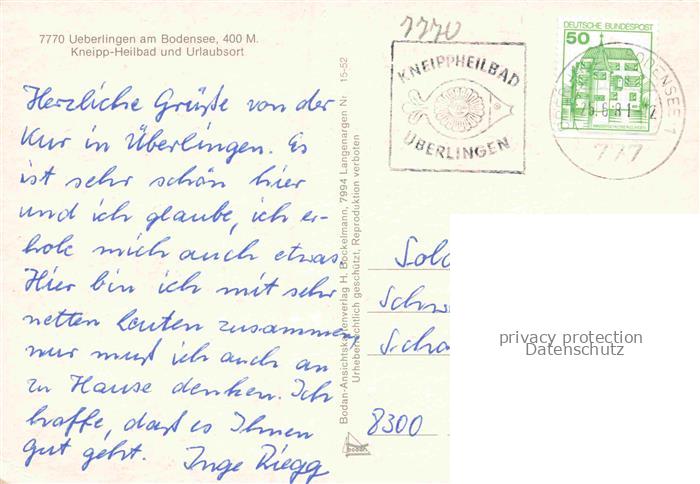 7770 Ueberlingen am Bodensee, 400 M.
Kneipp-Heilbad und Urlaubsort
Herzliche Grüße von der
Kur in Überlingen. Es
ist sehr schön hier
und ich glaube, ich er-
hole mich auch etwas.
Hier bin ich mit sehr
netten Leuten zusammen,
nur muß ich auch an
zu Hause denken. Ich
hoffe, daß es Ihnen
gut geht. Inge Riegg
Bodan-Ansichtskartenverlag H. Bockelmann, 7994 Langenargen Nr 15-52
Urheberrechtlich geschützt, Reproduktion verboten
bodan
7770
KNEIPPHEILBAD
ÜBERLINGEN
DEUTSCHE BUNDESPOST
50
777
8300
privacy protection
Datenschutz